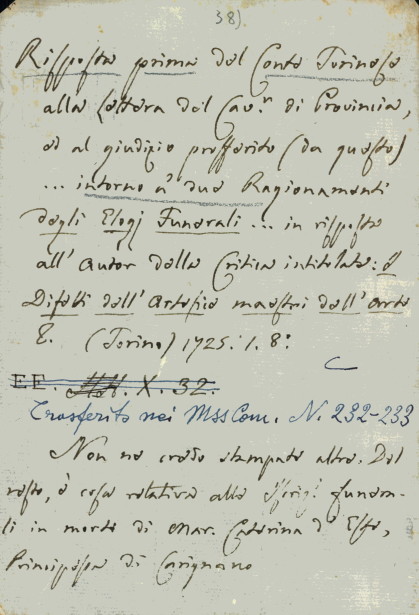 38)
Risposta prima del Conte Torinese
alla Lettera del Cav.r di Provincia,
ed al giudizio profferito (da questo)
... intorno a' due Ragionamenti
degli Elogj Funerali ... in risposta
all' Autor della Critica intitolata: I
Difetti dell' Artefice maestri dell' Arte
E. (Torino) 1725. 1. 8.°
EE. X. 32.
Trasferito nei MssCom. N. 232-233
Non ne credo stampate altre. Del
resto, è cosa relativa alle Iscriz.i funera-
li in morte di Mar. Caterina d' Este,
Principessa di Carignano